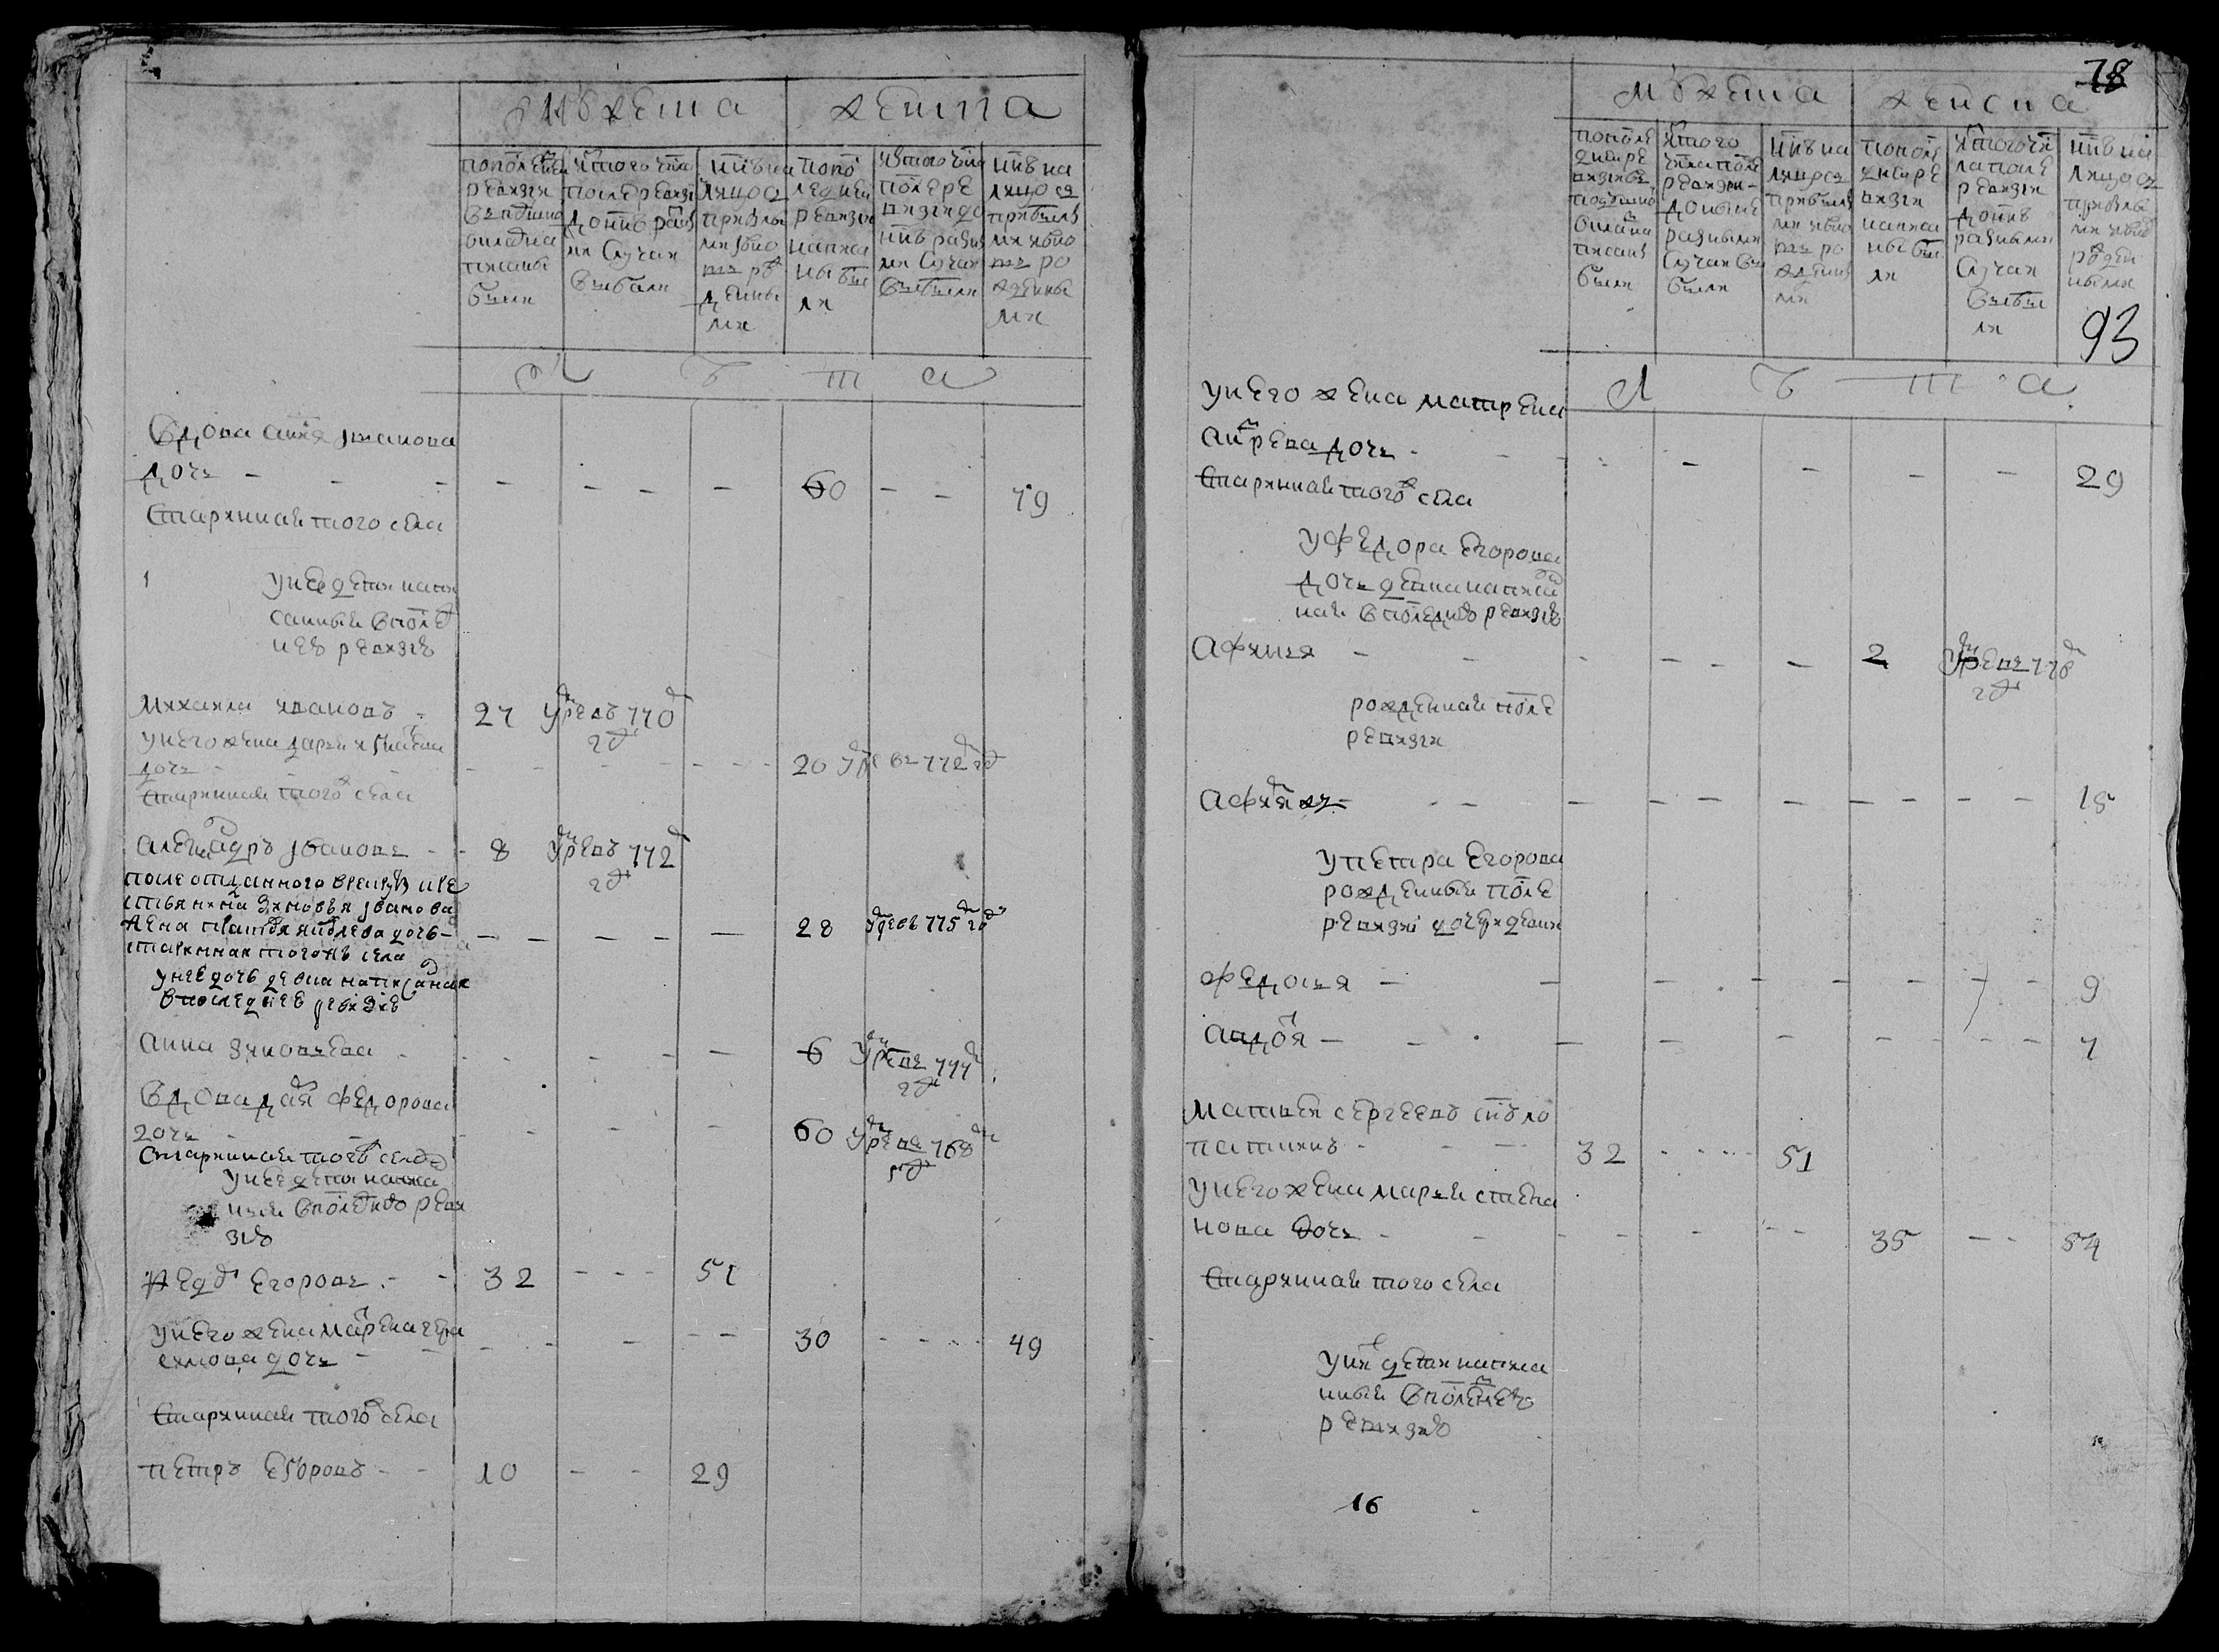 мужеска
женска
по последней
ревизии
в подушно
окладна
писаны
были
из того числа
после ревизи
до ныне разны
ми случаи
выбыли
ныне на
лицо с
прибылы
ми и вно
вь рож
денны
ми
по по
ледней
ревизии
написа
ны бы
ли
из того числа
после ре
визии до
ныне разны
ми случаи
выбыли
ныне на
лицо съ
прибылы
ми и вно
вь ро
жденны
ми
лѣта
вдова
дочь 60 79
старинная того села
у нее дети напи
санныи в послед
ней ревизiе
михаила ивановъ 27 умре въ 770 г
у него жена дарья
дочь 20 умре въ 772 г
стариннаи того ж села
александръ ивановъ 8 умре въ 772
г
после отданного в рекруты кре
стьянина зиновья иванова
жена дочь 28 умре въ 775 год
старинная того жъ села
у нее дочь девка написаная
в последнеѣ ревизiе
анна зиновьева 6 умре въ 777
г
вдова федорова
дочь 60 умре въ 768
г
стариннаи того ж села
у нее дети написа
ныи в последнѣ реви
зiѣ
федоръ егоровъ 32 51
у него жена матрена гера
симова дочь 30 49
стариннаи того ж села
петръ егоровъ 10 29
78
мужеска
женска
по после
дней ре
визии в
подушно
оклада
писаны
были
из того
числа после
ревизии
до ныне
разными
случаи вы
были
ныне на
лицо с
прибылы
ми и вно
вь ро
жденны
ми
по посл
едней ре
визии
написа
ны бы
ли
из того чи
ла после
ревизии
до ныне
разными
случаи
выбы
ли
ныне на
лицо съ
прибылы
ми и внов
рожден
ными
93
лѣта
у него жена матрена
андреева дочь 29
стариннаи того ж села
у федора егорова
дочь девка написан
наи в последнѣ ревизiѣ
афимья 2 умре въ 778
г
рожденнаи после
ревизии
афимья 18
у петра егорова
рожденныи после
ревизиi дочери девки
федосья 9
авдотя 7
матвеи сергеевъ
32 51
у него жена марья степа
нова дочь 35 54
стариннаи того села
у них дети написа
нныи в последнеѣ
ревизиѣ
16